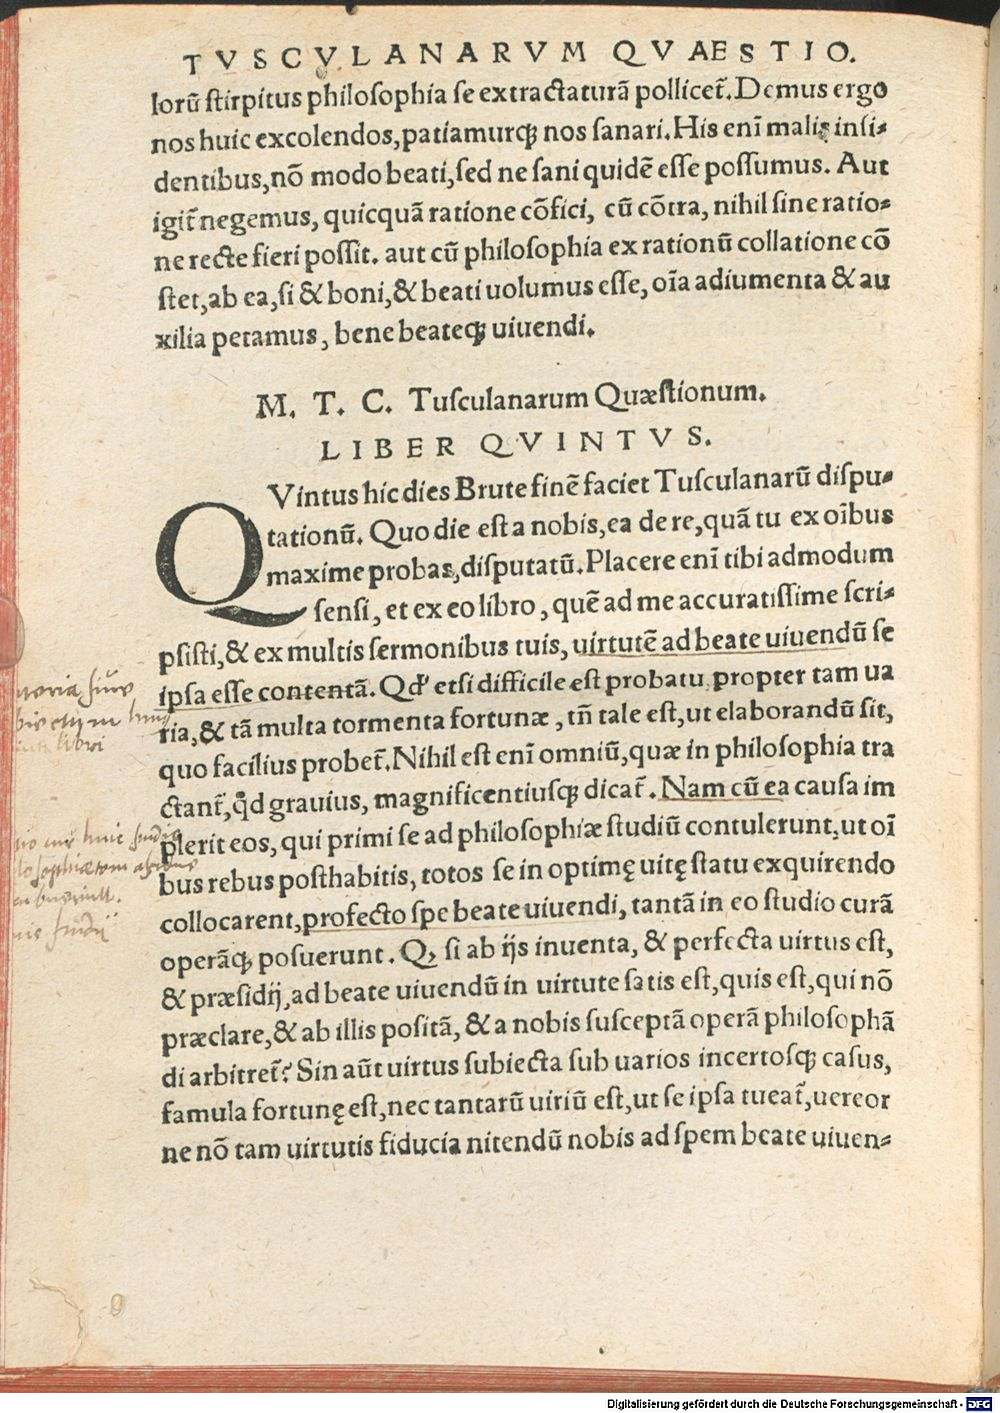 TVSCVLANARVM QVAESTIO.
lorū stirpitus philosophia se extractaturā pollicet᷑. Demus ergo
nos huic excolendos, patiamurqꝫ nos sanari. His eni᷑ malis insi-
dentibus, nō modo beati, sed ne sani quidē esse possumus. Aut
igit᷑ negemus, quicquā ratione cōfici, cū cōtra, nihil sine ratio-
ne recte fieri possit. aut cū philosophia ex rationū collatione cō
stet, ab ea, si & boni, & beati uolumus esse, oīa adiumenta & au
xilia petamus, bene beateqꝫ uiuendi.
M. T. C. Tusculanarum Quæstionum.
LIBER QVINTVS.
QVintus hic dies Brute finē faciet Tusculanarū dispu-
tationū. Quo die est a nobis, ea de re, quā tu ex oībus
maxime probas, disputatū. Placere enī tibi admodum
sensi, et ex eo libro, quē ad me accuratissime scri-
psisti, & ex multis sermonibus tuis, uirtutē ad beate uiuendū se
ipsa esse contentā. Qd' etsi difficile est probatu propter tam ua
ria, & tā multa tormenta fortunæ, tn̄ tale est, ut elaborandū sit,
quo facilius probet᷑. Nihil est enī omniū, quæ in philosophia tra
ctant᷑, qđ grauius, magnificentiusqꝫ dicat᷑. Nam cū ea causa im
plerit eos, qui primi se ad philosophiæ studiū contulerunt, ut oī
bus rebus posthabitis, totos se in optimę uitę statu exquirendo
collocarent, profecto spe beate uiuendi, tantā in eo studio curā
operāqꝫ posuerunt. Qꝫ si ab ijs inuenta, & perfecta uirtus est,
& præsidij, ad beate uiuendū in uirtute satis est, quis est, qui nō
præclare, & ab illis positā, & a nobis susceptā operā philosophā
di arbitret᷑? Sin aūt uirtus subiecta sub uarios incertosqꝫ casus,
famula fortunę est, nec tantarū uiriū est, ut se ipsa tueat᷑, uereor
ne nō tam uirtutis fiducia nitendū nobis ad spem beate uiuen-
libri
Digitalisierung gefördert durch die Deutsche Forschungsgemeinschaft - DFG